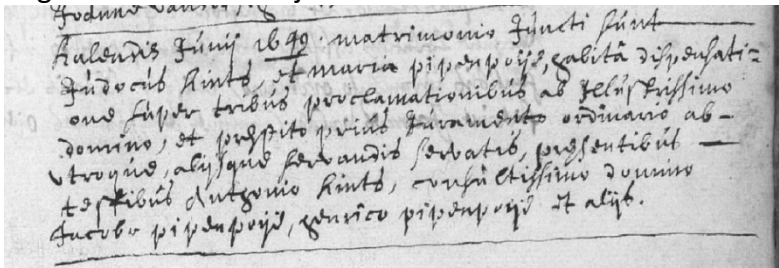 Kalendis Junij 1649 matrimonio juncti sunt
Judocus Kints, et Maria pipenpoije, habitâ dispensati=
one super tribus proclamationibus ab Illustrissimo
domino, et præstito prius Juramento ordinario ab-
utroque, alijsque servandis servatis, præsentibus
testibus Anthonio Kints, consultissimo domino
Jacobo pipenpoije, henrico pipenpoije et alijs.